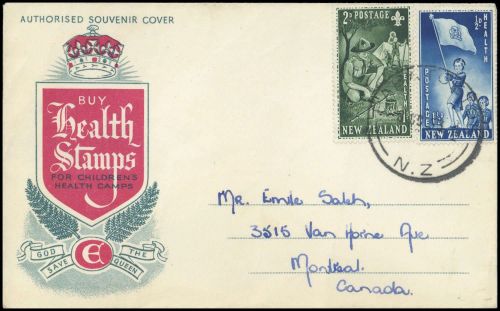 AUTHORISED SOUVENIR COVER
BUY
Health
Stamps
FOR CHILDREN'S
HEALTH CAMPS
GOD SAVE THE QUEEN
E
2D POSTAGE
HEALTH
NEW ZEALAND
HEALTH
POSTAGE
NEW ZEALAND
N.Z
Mr. Emile Saleh,
3515 Van Horne Ave
Montreal.
Canada.